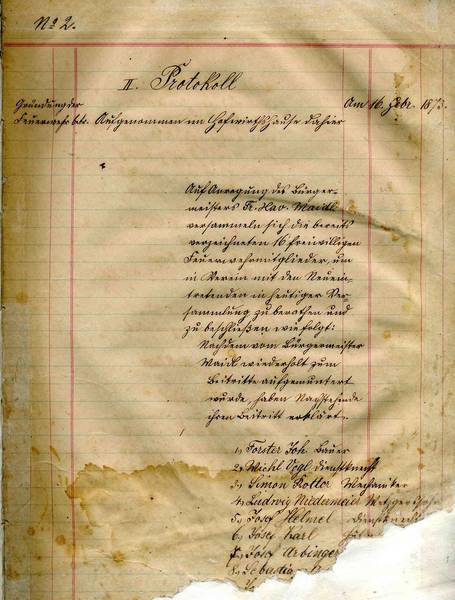 No 2.
II. Protokoll
Gründung der Am 16. Febr. 1873.
Feuerwehr betr. Aufgenommen im Hofwirthshause dahier
Auf Anregung des Bürger-
meisters Fr. Xav. Maidl
versammeln sich die bereits
verzeichneten 16 freiwilligen
Feuerwehrmitglieder, um
in Verein mit den Neuein-
tretenden in heutiger Ver-
sammlung zu berathen und
zu beschließen wie folgt:
Nachdem vom Bürgermeister
Maidl wiederholt zum
Beitritte aufgemuntert
wurde, haben Nachstehende
ihren Beitritt erklärt.
1) Forster Joh. Bauer
2) Michl Vogl Dienstknecht
3) Simon Rottor
4) Ludwig Niedermeier Metzgerssohn
5) Josef Helmel Dienstknecht
6) Josef Karl
7) Josef Arbinger
8) Sebastia